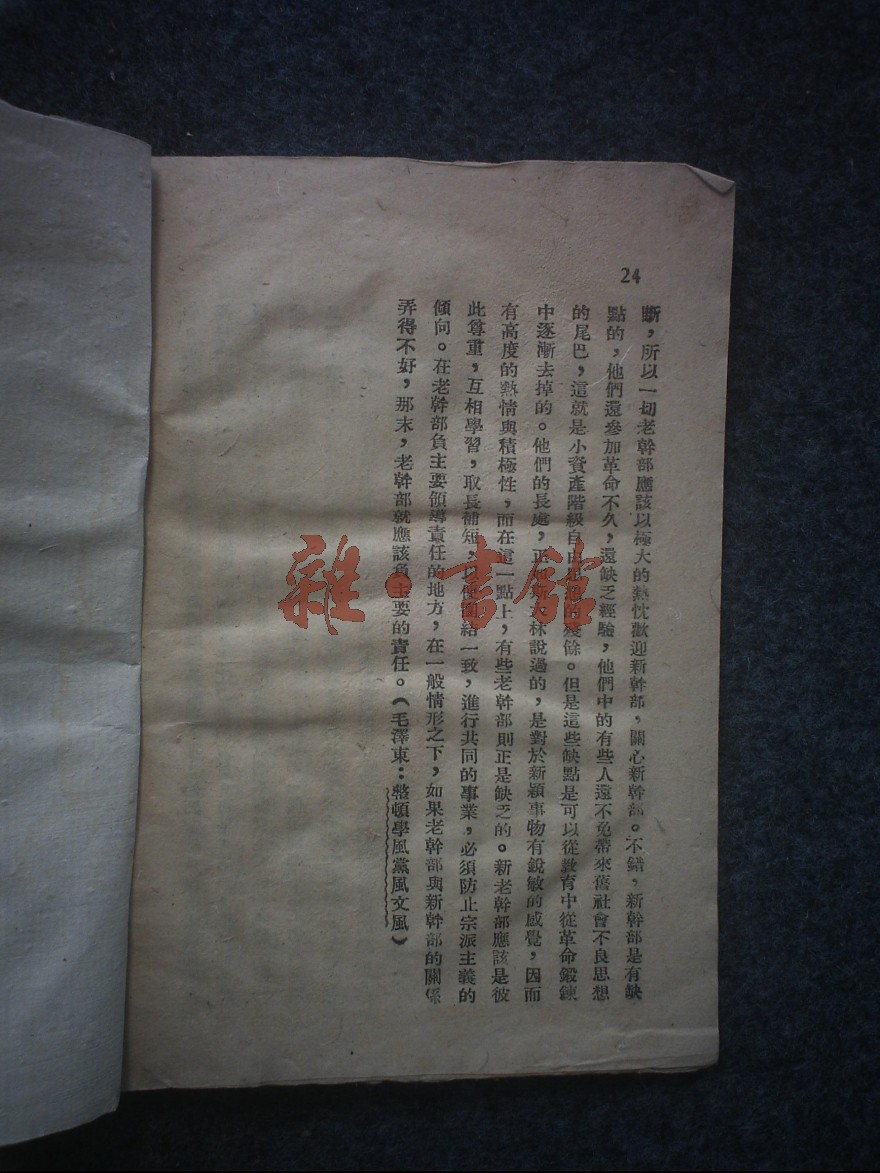 24
斷，所以一切老幹部應該以極大的熱忱歡迎新幹部，關心新幹部。不錯，新幹部是有缺
點的，他們還參加革命不久，還缺乏經驗，他們中的有些人還不免帶來舊社會不良思想
的尾巴，這就是小資產階級自由思想的殘餘。但是這些缺點是可以從教育中從革命鍛鍊
中逐漸去掉的。他們的長處，正如斯大林說過的，是對於新穎事物有銳敏的感覺，因而
有高度的熱情與積極性，而在這一點上，有些老幹部則正是缺乏的。新老幹部應該是彼
此尊重，互相學習，取長補短，以便團結一致，進行共同的事業，必須防止宗派主義的
傾向。在老幹部負主要領導責任的地方，在一般情形之下，如果老幹部與新幹部的關係
弄得不好，那末，老幹部就應該負主要的責任。（毛澤東：整頓學風黨風文風）
雜·書館